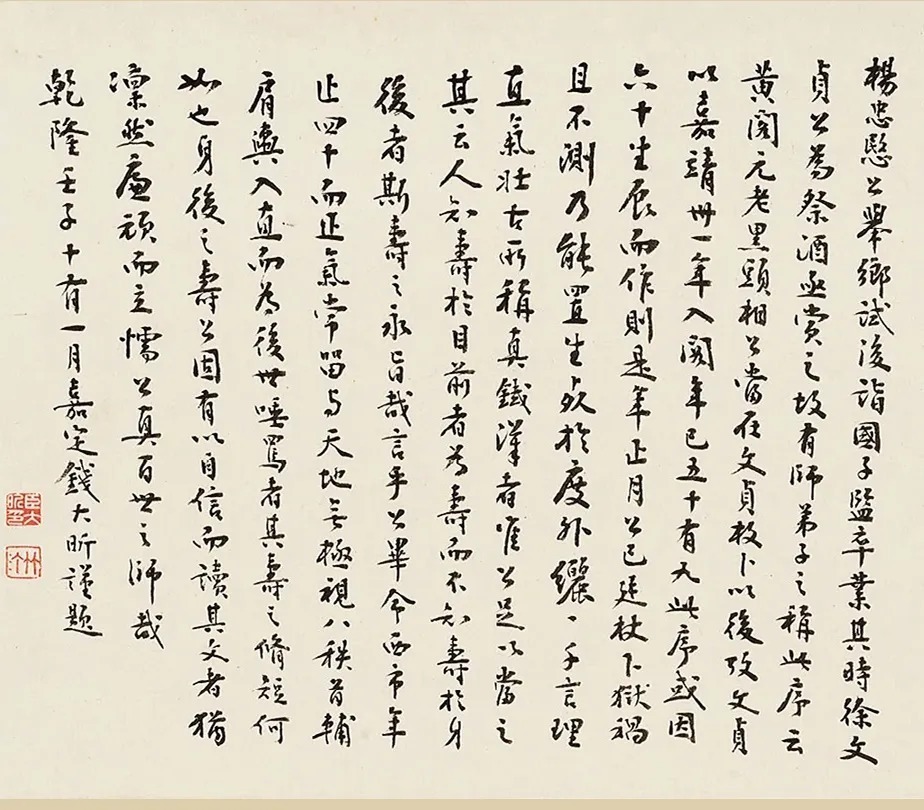 楊忠愍公舉鄉試後詣國子監卒業其時徐文
貞公爲祭酒亟賞之故有師弟子之稱此序云
黃閣元老黑頭相公當在文貞枚卜以後攷文貞
以嘉靖卅一年入閣年已五十有九此序或因
六十生辰而作則是年正月公已廷杖下獄禍
且不測乃能置生死於度外纚〻千言理
直氣壯古所稱真鐵漢者唯公足以當之
其云人知壽於目前者爲壽而不知壽於身
後者斯壽之永旨哉言乎公畢命西市年
止四十而正氣常留與天地無極視八秩首輔
肩輿入直而爲後世唾罵者其壽之脩短何
如也身後之壽公固有以自信而讀其文者猶
凜然廉頑而立懦公真百世之師哉
乾隆壬子十有一月嘉定錢大昕謹題
臣大昕印
竹汀